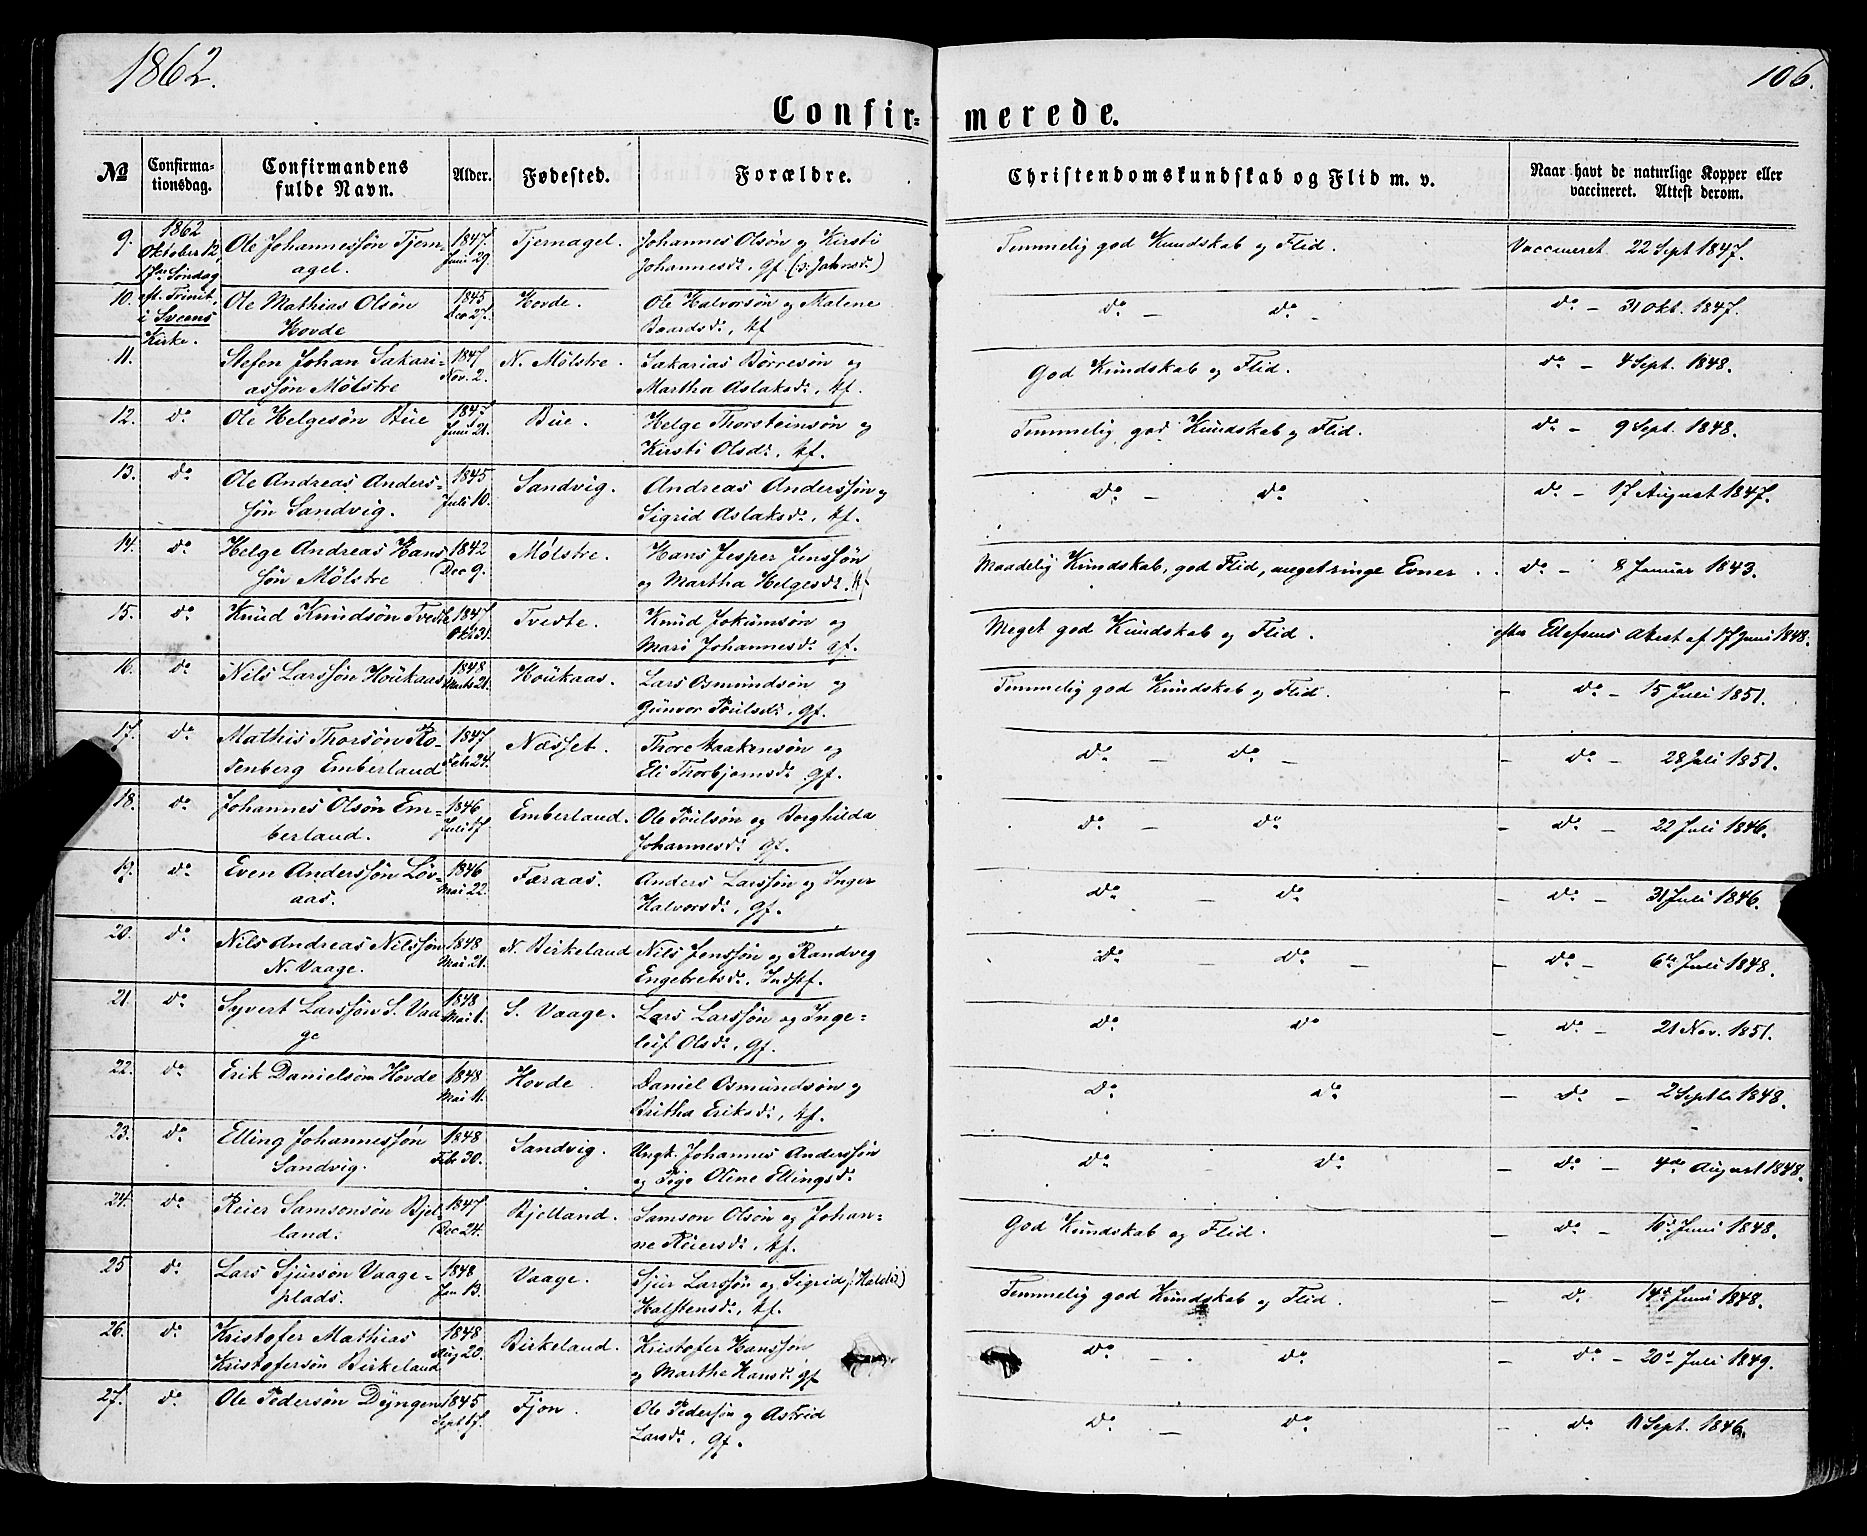 1862.
106.
Confir=merede.
№ Confirma-tionsdag. Confirmandens fulde Navn. Alder. Fødested. Forældre. Christendomskundskab og Flid m. v. Naar havt de naturlige Kopper eller vaccineret. Attest derom.
9. 1862 Oktober 12 17de Søndag eft. Trinit. i Sveens Kirke. Ole Johannessøn Tjernagel. 1847. Juni 29. Tjernagel. Johannes Olsøn og Kirsti Johannesd:, gf. (o: Jahnsd:) Temmelig god Kundskab og Flid. Vaccineret 22 Sept 1847.
10. Ole Mathias Olsøn Hovde 1845 Dec 27. Hovde. Ole Halvorsøn og Malene Baardsd:, kf do - do - do - 31 Okt. 1847.
11. Stefen Johan Sakariassøn Mølstre 1847 Nov. 2. N. Mølstre. Sakarias Børresøn og Martha Aslaksd:, kf. God Kundskab og Flid. do - 4 Sept. 1848.
12. do Ole Helgesøn Bue 1847 Juni 21. Bue. Helge Thorsteinsøn og Kirsti Olsd:, kf. Temmelig god Kundskab og Flid. do - 9 Sept. 1848.
13. do Ole Andreas Anders=søn Sandvig. 1845 Juli 10. Sandvig. Andreas Anderssøn og Sigrid Aslaksd:, kf. do - do do - 17 August 1847.
14. do Helge Andreas Hanssøn Mølstre 1842 Dec 9. Mølstre. Hans Jesper Jenssøn og Martha Helgesd:, kf Maadelig Kundskab, god Flid, meget ringe Evner. do - 8 Januar 1843.
15. do Knud Knudsøn Tvedte 1847 Okt 31. Tvedte. Knud Jokumsøn og Mari Johannesd: gf. Meget god Kundskab og Flid. efter Ellefsens Attest af 17 Juni 1848.
16. do Nils Larssøn Houkaas 1848 Marts 21. Houkaas. Lars Osmundsøn og Gunvor Poulsd:, gf. Temmelig god Kundskab og Flid. - do - 15 Juli 1851.
17. do Mathis Thorsøn Rosenberg Emberland 1847 Feb 24. Næsset. Thore Haakensøn og Eli Thorbjørnsd: gf. do - do - - do - 28 Juli 1851.
18. do Johannes Olsøn Em=berland. 1846 Juli 17. Emberland. Ole Poulsøn og Borghilda Johannesd: gf. do - do - do - 22 Juli 1846.
19. do Even Anderssøn Løv=aas. 1846 Mai 22. Færaas. Anders Larssøn og Inger Halvorsd:, gf. do - do - do - 31 Juli 1846.
20. do Nils Andreas Nilssøn N. Vaage. 1848 Mai 21. N. Birkeland Nils Jenssøn og Randveg Engebretsd:, Indstf. do - do - - do - 6te Juli 1848.
21. do Syvert Larssøn S. Vaage 1848 Mai 1. S. Vaage. Lars Larssøn og Inge=leif Olsd:, gf. do do - do - 21 Nov. 1851.
22. do Erik Danielsøn Hovde 1848 Mai 11. Hovde. Daniel Osmundsøn og Britha Eriksd:, kf. do do - do - 2 Septbr 1848.
23. do Elling Johannessøn Sandvig. 1848 Febr 30. Sandvig. Ungk. Johannes Anderssøn og Pige Oline Ellingsd: do - do - do - 4de August 1848.
24. do Reier Samsonsøn Bjelland. 1847 Dec 24. Bjelland. Samson Olsøn og Johan=ne Reiersd:, kf. God Kundskab og Flid. - do - 10d Juni 1848.
25 do Lars Sjursøn Vaage=plads. 1848 Jan 13. Vaage. Sjur Larssøn og Sigrid Halstensd:, kf. Temmelig god Kundskab og Flid. - do 14d Juni 1848.
26. do Kristofer Mathias Kristofersøn Birkeland 1848 Aug 20. Birkeland. Kristofer Hanssøn og Marthe Hansd: gf do - do - do - 20d Juli 1849.
27. do Ole Pedersøn Dyngen 1845 Sept 17. Fjon. Ole Pedersøn og Astrid Larsd:, gf. do - do - do 11 Sept. 1846.